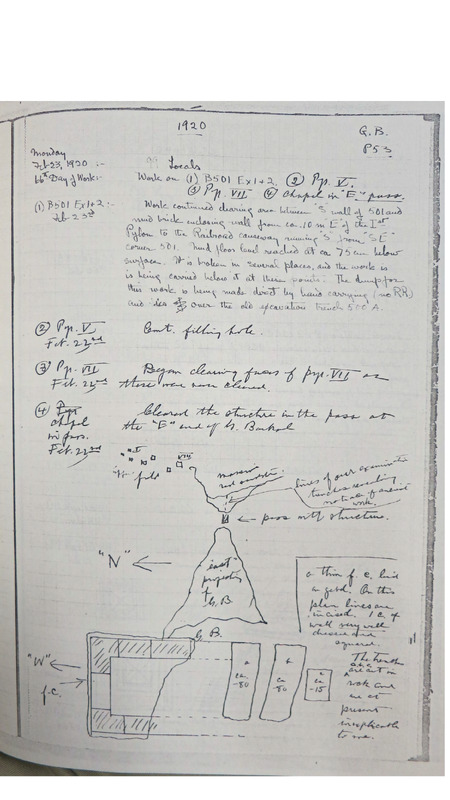 1920
G.B.
P53
Monday
Feb 23, 1920 :-
66th Day of Work :-
99 Locals
Work on (1) B501 Ex1+2, (2) Pyr. V.
(3) Pyr. VII (4) Chapel in "E" pass.
(1) B501 Ex1+2 :-
Feb. 23rd
Work continued clearing area between "S" wall of 501 and
mud brick enclosing wall from ca. 10 m E of the Ist
Pylon to the Railroad causeway running "S" from "SE"
corner 501. Mud floor level reached at ca 75 cm below
surface. It is broken in several places, and the work is
is being carried below it at these points. The dump for
this work is being made direct by hand carrying (no RR)
and lies over the old excavation trench 500 A.
(2) Pyr. V
Feb. 22nd
Cont. filling hole.
(3) Pyr. VII
Feb. 22nd
Began clearing faces of pyr. VII as
these were never cleared.
(4)
Chapel
in pass.
Feb. 22nd
Cleared the structure in the pass at
the "E" end of G. Barkal
VIII
field
lines of our
pass with structure.
"N"
east
of
G.B.
G.B.
a thin f.c. laid
on gebel. On this
plan lines are
incised.
wall very well
dressed and
square.
"W"
f.c.
a
ca
-80
ca
-80
ca
-15
The
are cut in
rock and
are at
present
inexplicable
to me.